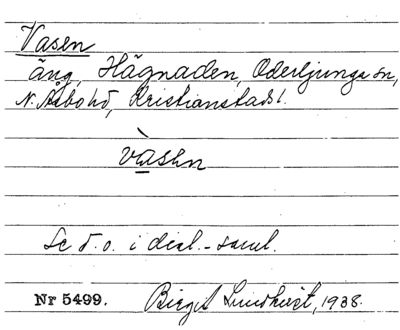 Vasen
äng, Hägnaden, Oderljunga sn,
N. Åsbo hd, Kristianstads l.
vàsen
Se d.o. i dial.-saml.
Nr 5499. Birgit Lundkvist, 1938.